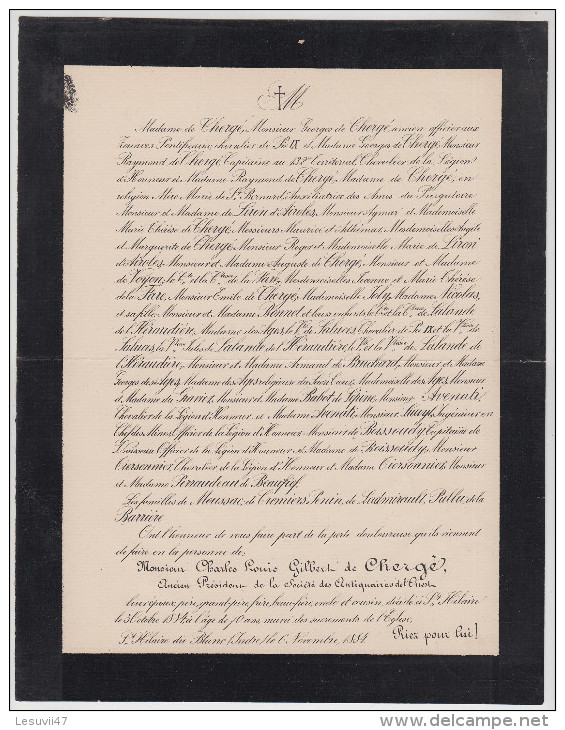 Madame de Chergé, Monsieur Georges de Chergé, ancien officier aux
Zouaves Pontificaux, chevalier de Pie IX et Madame Georges de Chergé, Monsieur
Raymond de Chergé, Capitaine au Territorial, Chevalier de la Légion
d'Honneur et Madame Raymond de Chergé, Madame de Chergé, en
religion Mère Marie de St Bernard, Auxiliatrice des Ames du Purgatoire
Monsieur et Madame de Liron d'Airoles, Monsieur Aymar et Mademoiselle
Marie Thérèse de Chergé, Messieurs Maurice et Mesdemoiselles Angèle
et Marguerite de Chergé, Monsieur Roger et Mademoiselle Marie de Liron
d'Airoles, Monsieur et Madame Auguste de Chergé, Monsieur et Madame
de Voyon, le Cte et la Ctesse de la Fare, Mesdemoiselles Jeanne et Marie Thérèse
de la Fare, Monsieur Emile de Chergé, Mademoiselle Joly, Madame Nicolas,
et sa fille, Monsieur et Madame Bonnet et leurs enfants, le Cte et la Ctesse de Lalande
de l'Héraudière, Madame des Ages, le Vte de Chevalier de Pie IX et la Vtesse de
le Vte Jules de Lalande de l'Héraudière, le Vte et la Vtesse de Lalande de
l'Héraudière, Monsieur et Madame Armand de Monsieur et Madame
Georges des Ages, Madame des Ages religieuse du Sacré Cœur, Mademoiselle des Ages, Monsieur
et Madame du Monsieur et Madame Babot de Monsieur Avenati
Chevalier de la Légion d'Honneur et Madame Avenati, Monsieur Ingénieur en
Chef des Mines, Officier de la Légion d'Honneur, Monsieur de Boissoudy, Capitaine de
Vaisseau, Officier de la Légion d'Honneur et Madame de Boissoudy, Monsieur
Ciersonnier, Chevalier de la Légion d'Honneur et Madame Ciersonnier, Monsieur
et Madame Perraudeau de Beaufief.
Les familles de Moussac, de Cremiers, de Ladmirault, Pallu de la
Barrière
Ont l'honneur de vous faire part de la perte douloureuse qu'ils viennent
de faire en la personne de,
Monsieur Charles Louis Gilbert de Chergé,
Ancien Président de la Société des Antiquaires de l'Ouest
leur époux, père, grand-père, frère, beau-frère, oncle et cousin, décédé à St Hilaire
le 31 Octobre 1884 à l'âge de ans, muni des sacrements de l'Eglise,
St Hilaire du Blanc (Indre) le 1er Novembre 1884. Priez pour lui!
Lesuvii47
delcampe.net